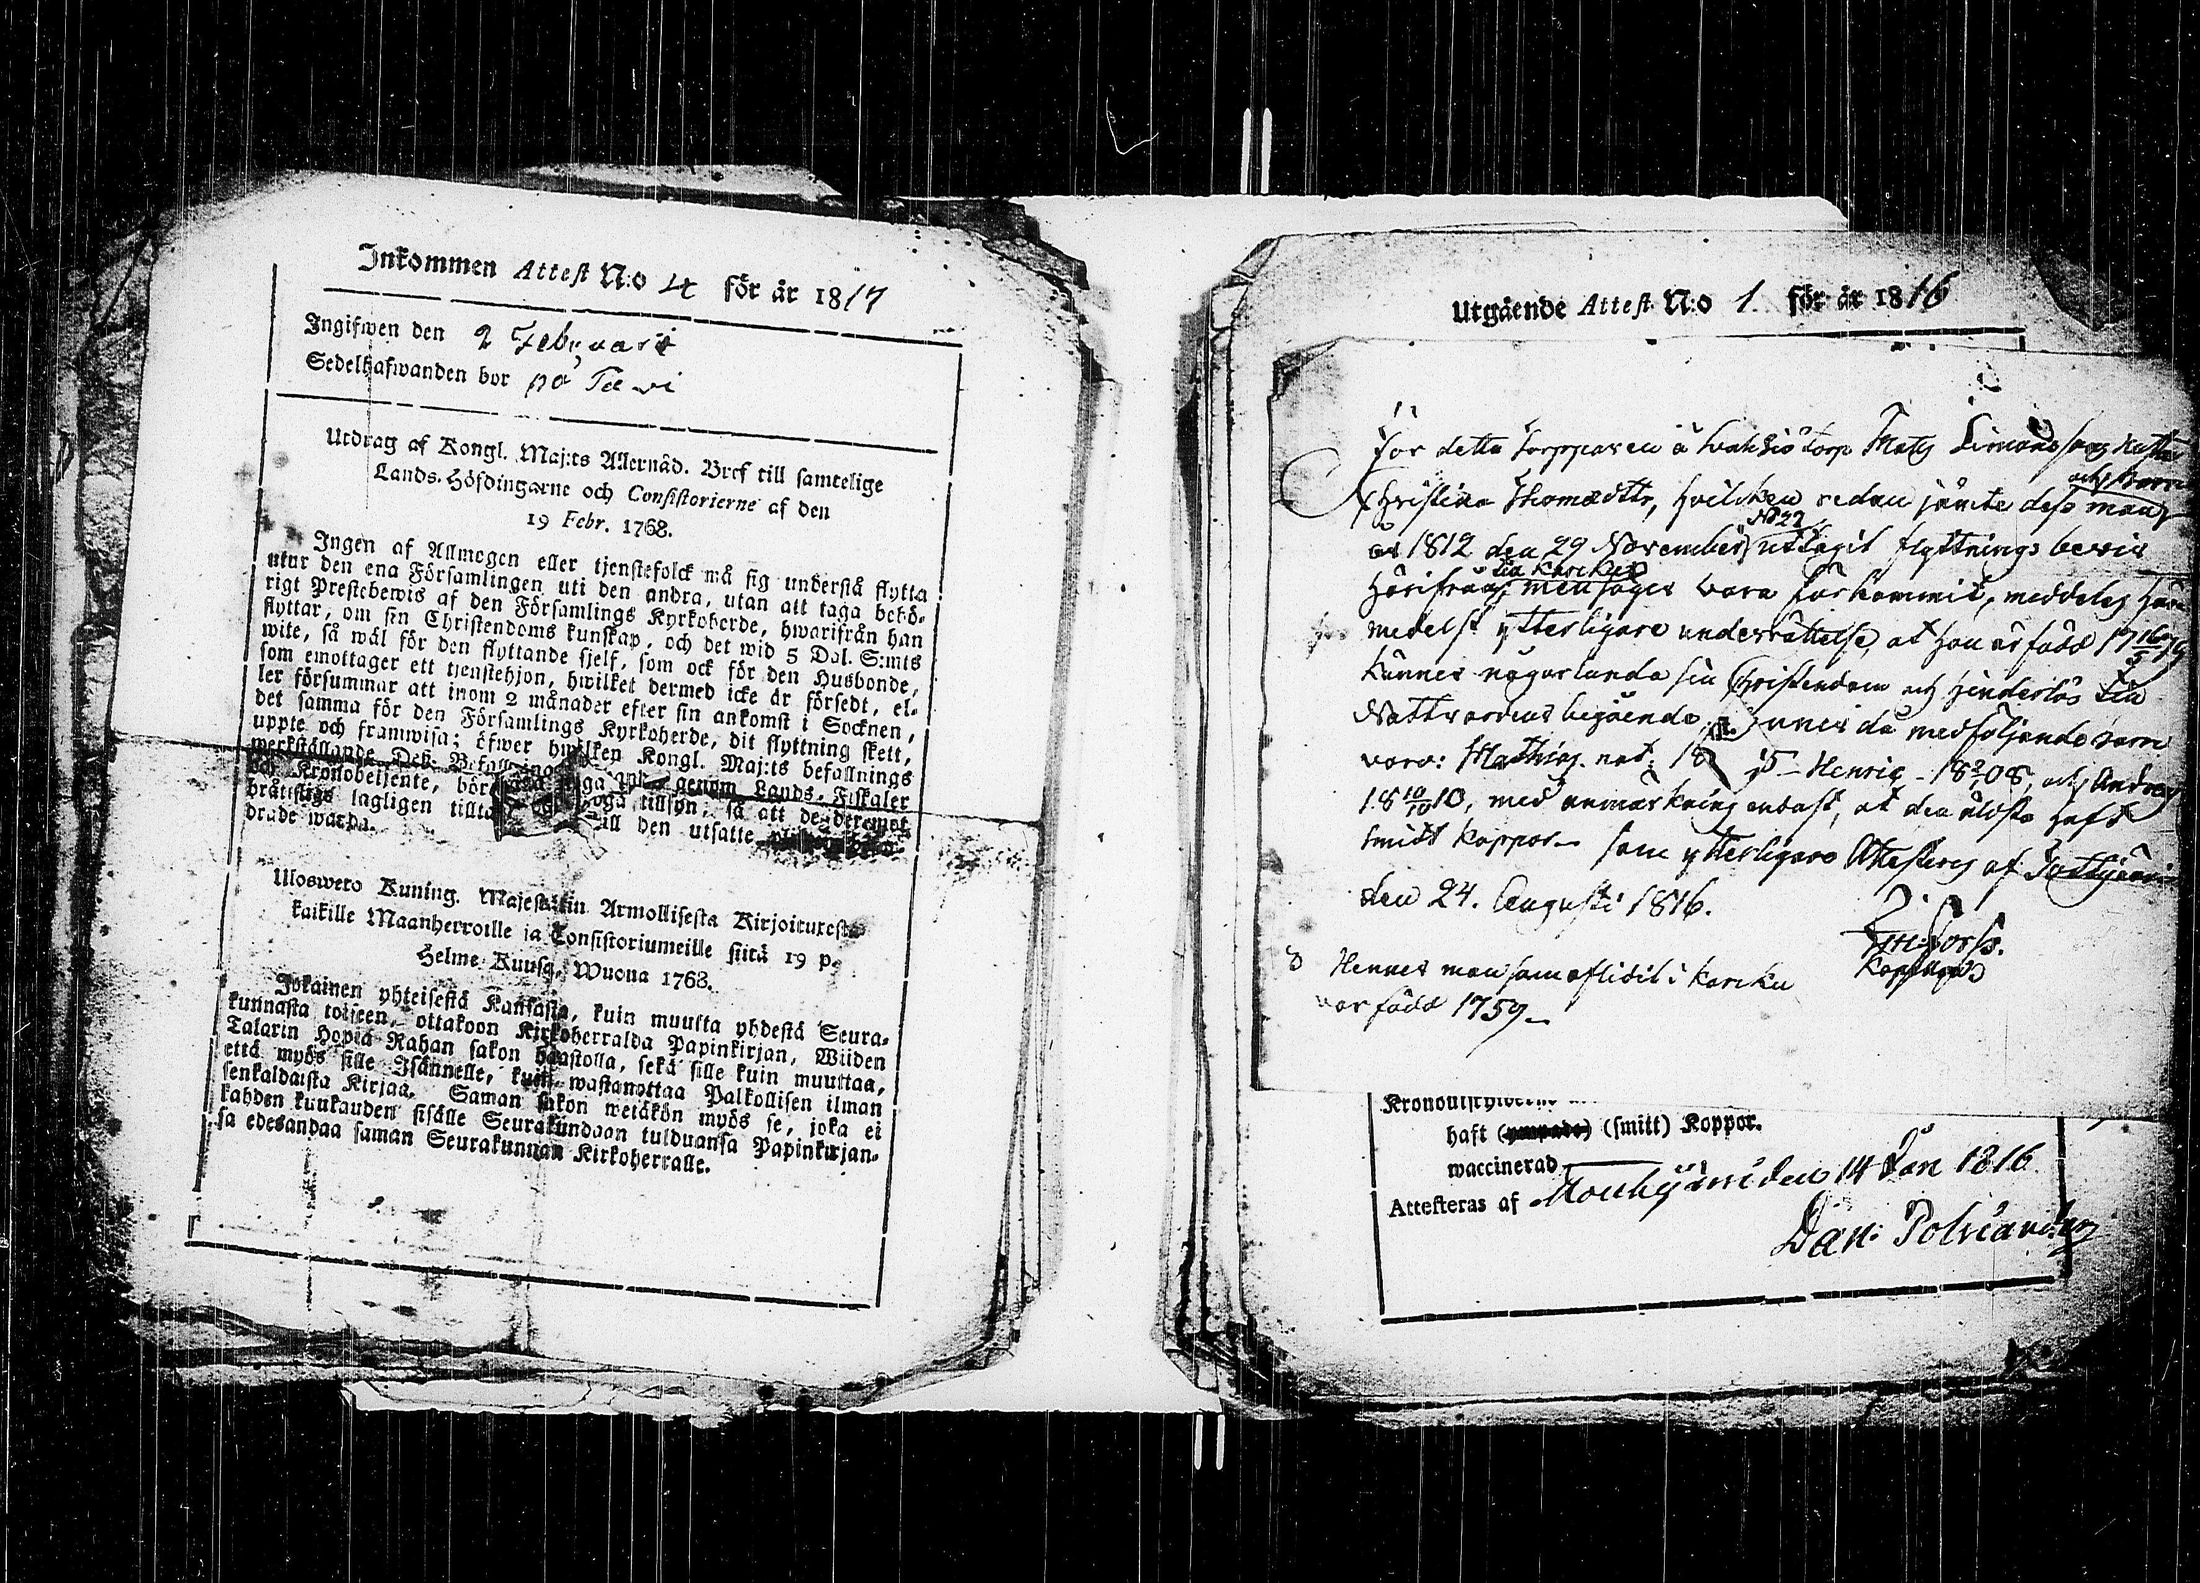 Inkommen Attest N:o 4 för år 1817
Ingifwen den 2 Februarii
Sedelhafwanden bor på Tawi
Utdrag af Kongl. Maj:ts Allernåd. Bref till samtelige
Lands-Höfdingarne och Consistorierne af den
19 Febr. 1768.
Ingen af Allmogen eller tjenstefolck må sig understå flytta
utur den ena Församlingen uti den andra, utan att taga behö-
rigt Prestebewis af den Församlings Kyrkoherde, hwarifrån han
flyttar, om sin Christendoms kunskap, och det wid 5 Dal. S:mts
wite, så wäl för den flyttande sjelf, som ock för den Husbonde,
som emottager ett tjenstehjon, hwilket dermed icke är försedt, el-
ler försummar att inom 2 månader efter sin ankomst i Socknen,
det samma för den Församlings Kyrkoherde, dit flyttning skett,
uppte och framwisa; öfwer hwilken Kongl. Maj:ts befallnings
werkställande Deß Befallning genom Lands-Fiskaler
och Kronobetjente, böra tillsyn, så att de deremot
bråttslige lagligen till den utsatte
drade warda.
Uloswero Kuning. Majestätin Armollisesta Kirjoituxesta
kaikille Maanherroille ja Consistoriumeille siitä 19 p.
Helme Kuusa, Wuona 1768.
Jokainen yhteisestä Kansasta, kuin muutta yhdestä Seura-
kunnasta toiseen, ottakoon Kirkoherralda Papinkirjan, Wiiden
Talarin Hopia Rahan sakon haastolla, sekä sille kuin muuttaa,
että myös sille Isännelle, kuin wastanottaa Palkollisen ilman
senkaldaista Kirjaa. Saman sakon wetäkön myös se, joka ei
kahden kuukauden sisälle Seurakundaan tulduansa Papinkirjan-
sa edesandaa saman Seurakunnan Kirkoherralle.
Utgående Attest N:o 1. för år 1816
För detta Torpparen å torp Mats Simonssons Hustru
och Barn
Christina Thomædtr, hvilken redan jämte dess man
No 22
år 1812 den 29 November uttagit flyttnings bevis
til Karcku
härifrån, men säges vara förkommit, meddeles här
medelst ytterligare underrättelse, at hon är född
känner någorlunda sin Christendom och hinderlös til
Nattvardens begående. Hennes då medföljande barn
voro: Mathias nat. 18 Henric - 18 2/7 08, och Andreas
18 10/10 10, med anmärkning endast, at den äldste haft
smitt koppor - som ytterligare Attesteras af
den 24. Augusti 1816.
Hennes man som aflidit i Karcku
var född 1759 -
haft (smitt) Koppor.
waccinerad
Attesteras af Mouhijärvi den 14 Jan 1816
Dan: Polviander